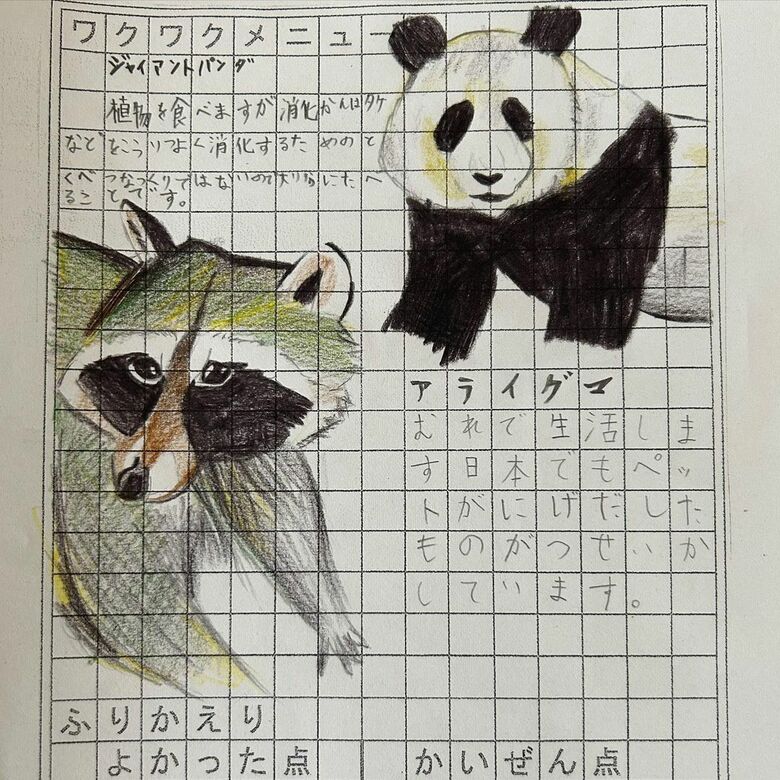 ワクワクメニュー
ジャイアントパンダ
植物を食べますが消化かんはタケ
などをこうりつよく消化するためのと
くべつなつくりではないので大りょうにたべ
ることです。
アライグマ
むれで生活しま
す日本でもペッ
トがにげだした
ものがつせいか
しています。
ふりかえり
よかった点 かいぜん点